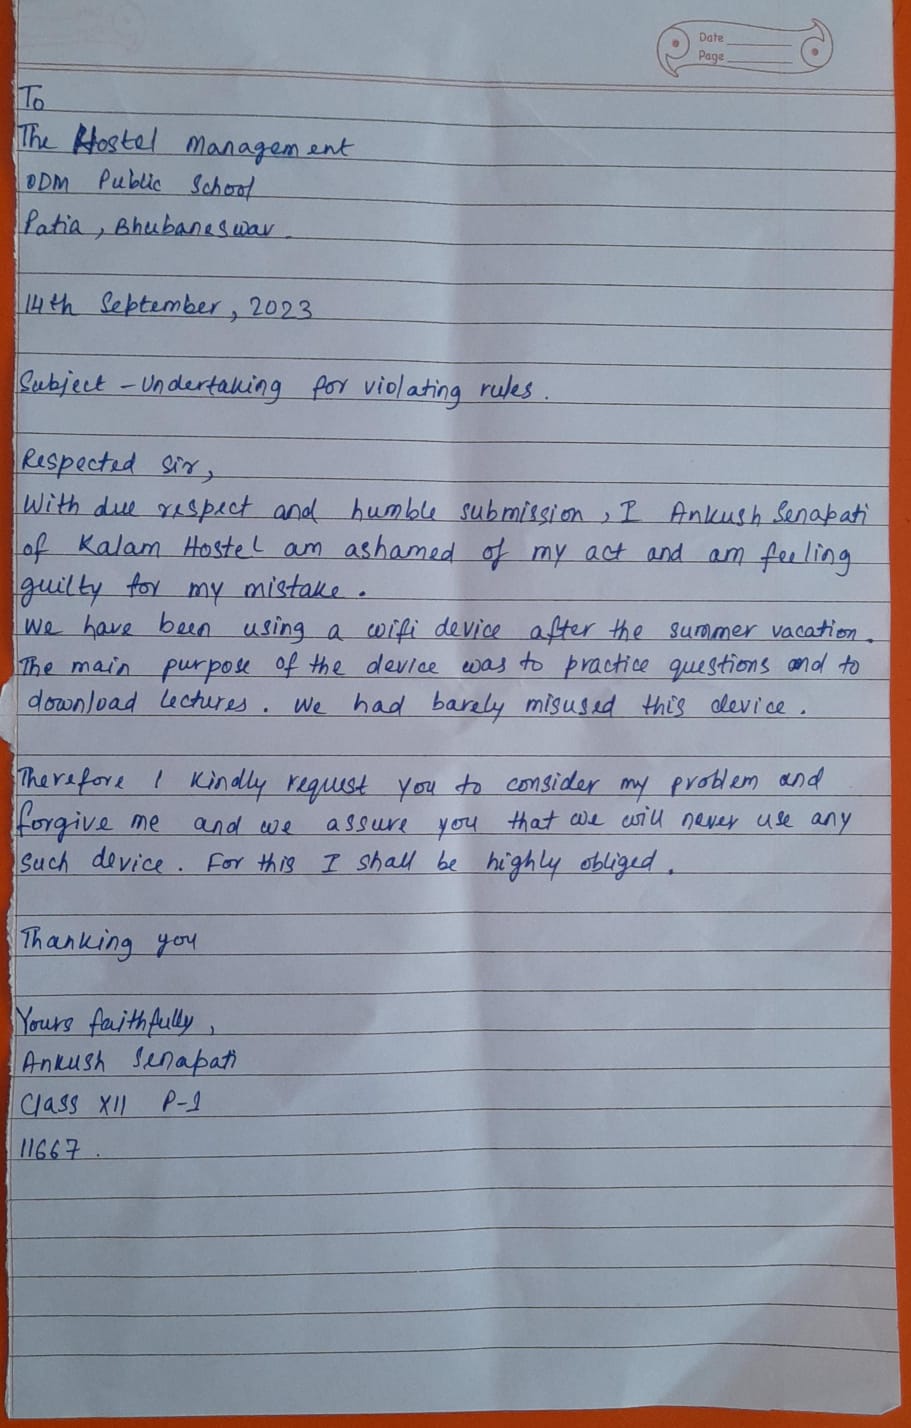 Date
Page
To
The Hostel Management
ODM Public School
Patia, Bhubaneswar.
14th September, 2023
Subject - Undertaking for violating rules.
Respected Sir,
With due respect and humble submission, I Ankush Senapati
of Kalam Hostel am ashamed of my act and am feeling
guilty for my mistake.
We have been using a wifi device after the summer vacation.
The main purpose of the device was to practice questions and to
download lectures. We had barely misused this device.
Therefore I kindly request you to consider my problem and
forgive me and we assure you that we will never use any
such device. For this I shall be highly obliged.
Thanking you
Yours faithfully,
Ankush Senapati
Class XII P-1
11667.